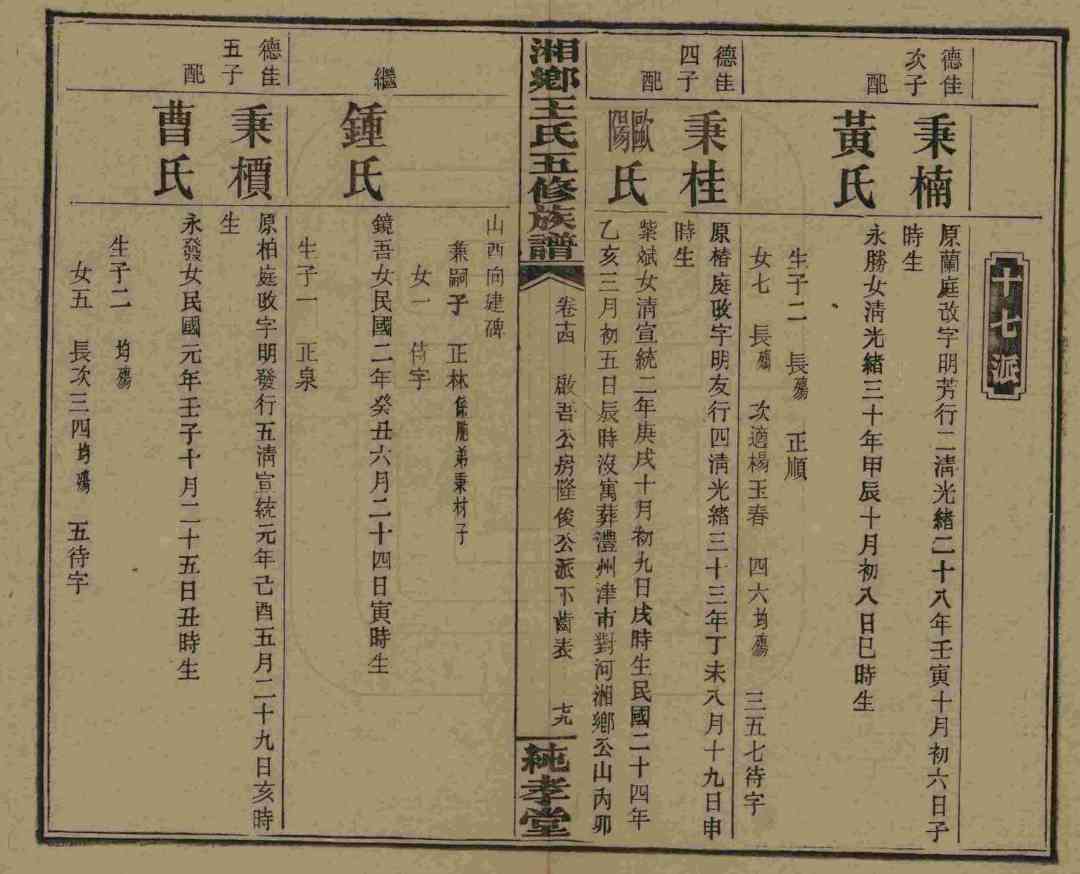 十七派
德隹
次子
秉楠
原蘭庭改字明芳行二清光緒二十八年壬寅十月初六日子
時生
配
黃氏
永勝女清光緒三十年甲辰十月初八日巳時生
生子二　長殤　正順
女七　長殤　次適楊玉春　四六均殤　三五七待字
德隹
四子
秉桂
原椿庭改字明友行四清光緒三十三年丁未八月十九日申
時生
配
歐陽氏
紫斌女清宣統二年庚戌十月初九日戌時生民國二十四年
乙亥三月初五日辰時沒寓葬澧州津市對河湘鄉公山丙卯
湘鄉王氏五修族譜
卷十四　啟吾公房隆俊公派下齒表　十九
純孝堂
山酉向建碑
兼嗣子　正林係胞弟秉材子
女一　待字
繼
鍾氏
鏡吾女民國二年癸丑六月二十四日寅時生
生子一　正泉
德隹
五子
秉檟
原柏庭改字明發行五清宣統元年己酉五月二十九日亥時
生
配
曹氏
永發女民國元年壬子十月二十五日丑時生
生子二　均殤
女五　長次三四均殤　五待字